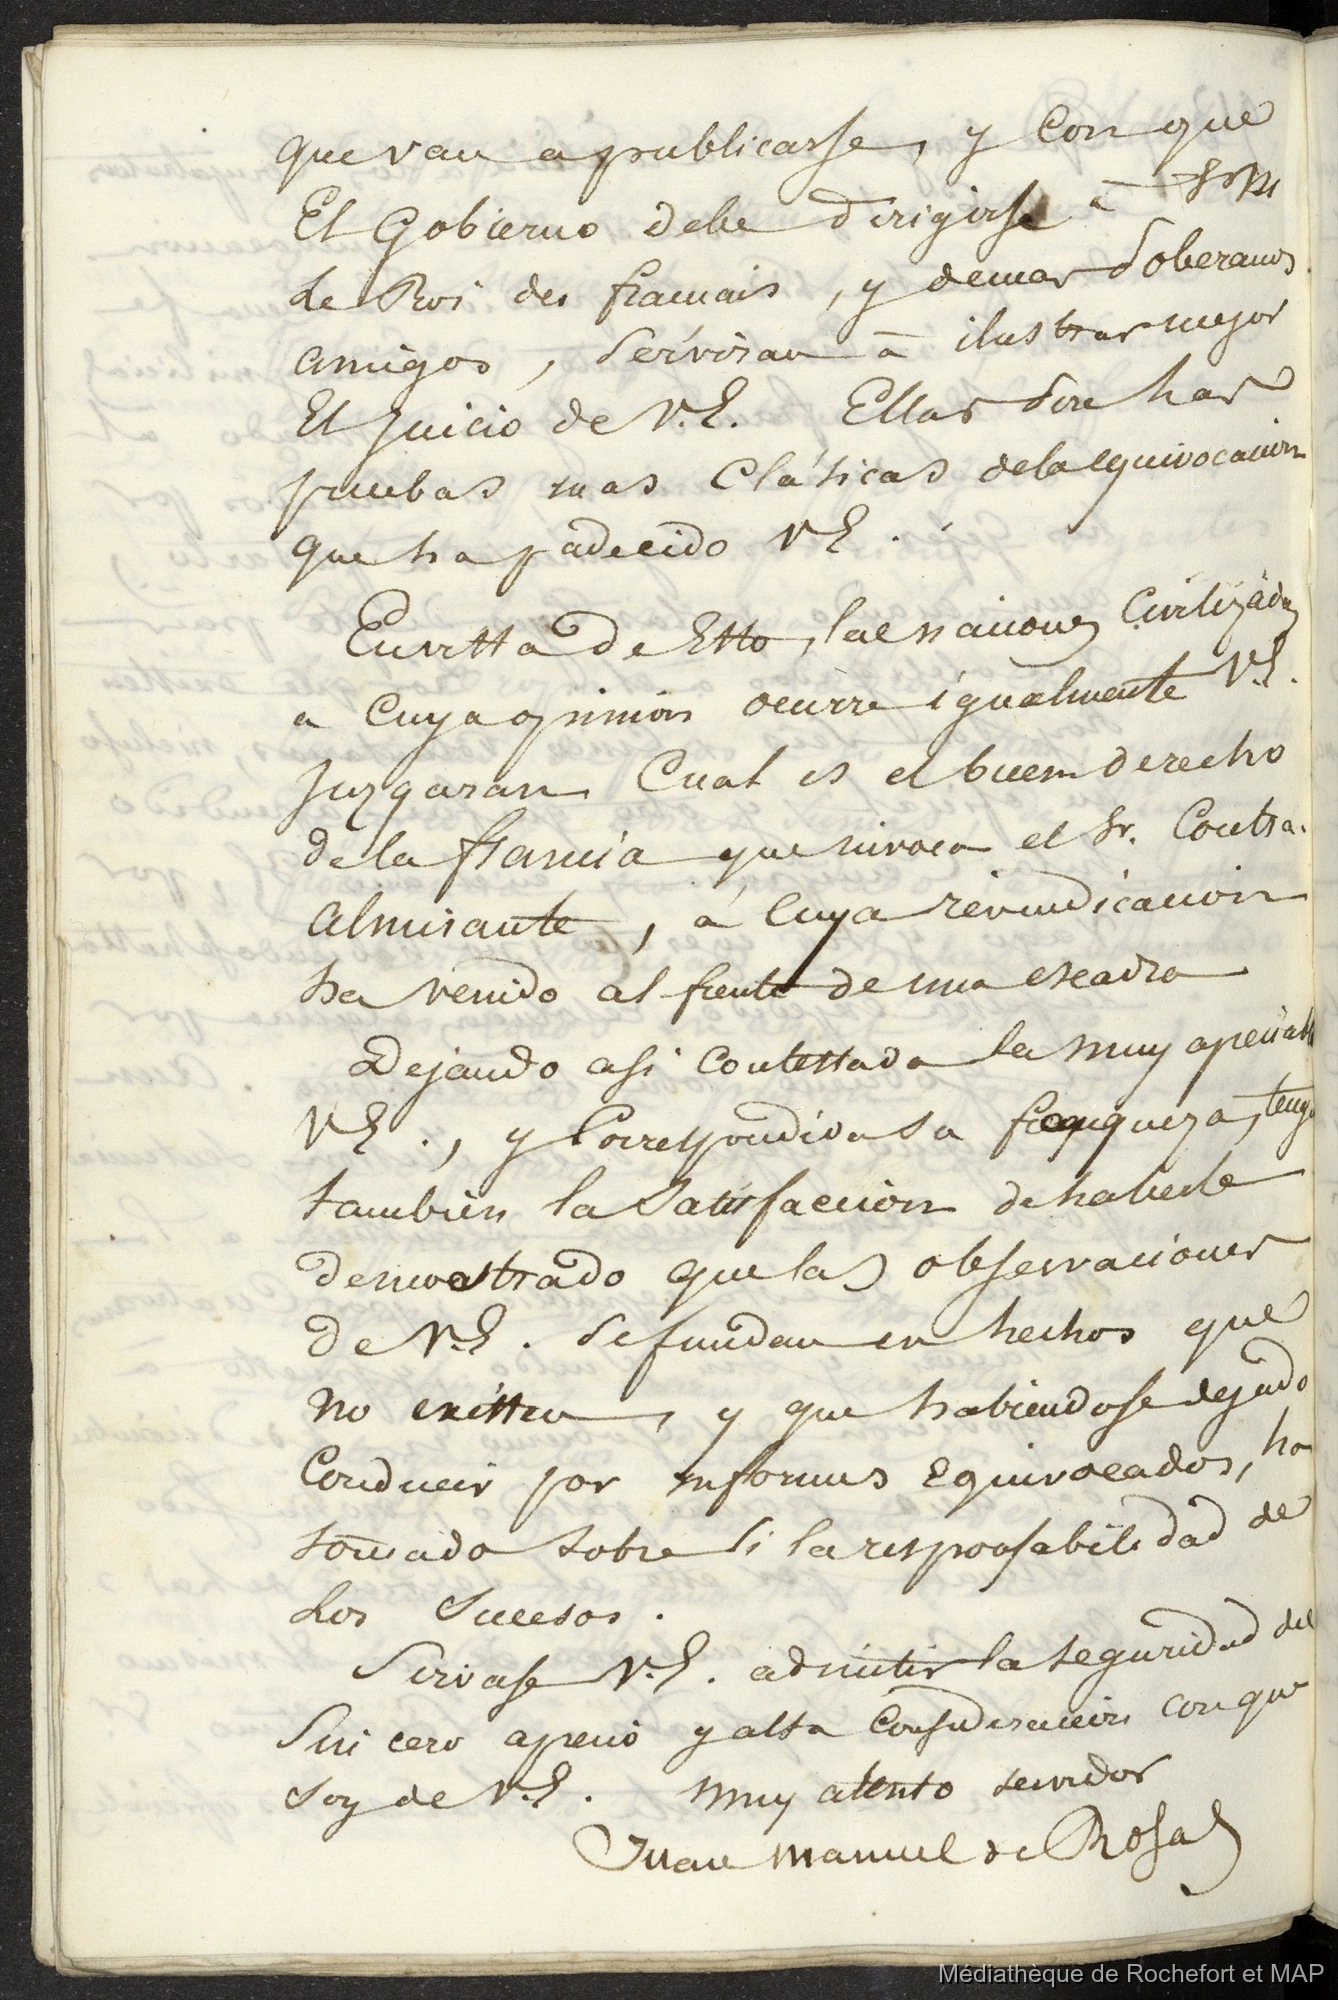 que van a publicarse, y con que
El Gobierno debe dirigirse à SM
Le Roi des francais, y demas Soberanos
amigos, Serviran à ilustrar mejor
El juicio de V.E. Ellas Son har
pruebas mas Clásicas dela equivocacion
que ha padecido VE.
En vista de Esto, las naciones Civilizadas
a Cuya opinion ocurre igualmente V.E.
Juzgaran Cual es el buen derecho
de la francia que invoca el Sr. Contra.
almirante, á Cuya revindicacion
ha venido al frente de una escadra
Dejando asi Contestada la muy apreciable
VE., y Correspondida Sa franqueza, tengo
tambien la Satisfaccion de haberle
demostrado que las observaciones
de V.E. Se fundan en hechos que
no existen, y que habiendose dejado
Conducir por informes Equivocados, ha
tomado Sobre Si la responsabilidad de
Los Sucesos.
Sirvase V.E. admitir la seguridad del
Sincero aprecio y alta Consideracion con que
soy de V.E. muy atento servidor
Juan manuel de Rosas
Médiathèque de Rochefort et MAP